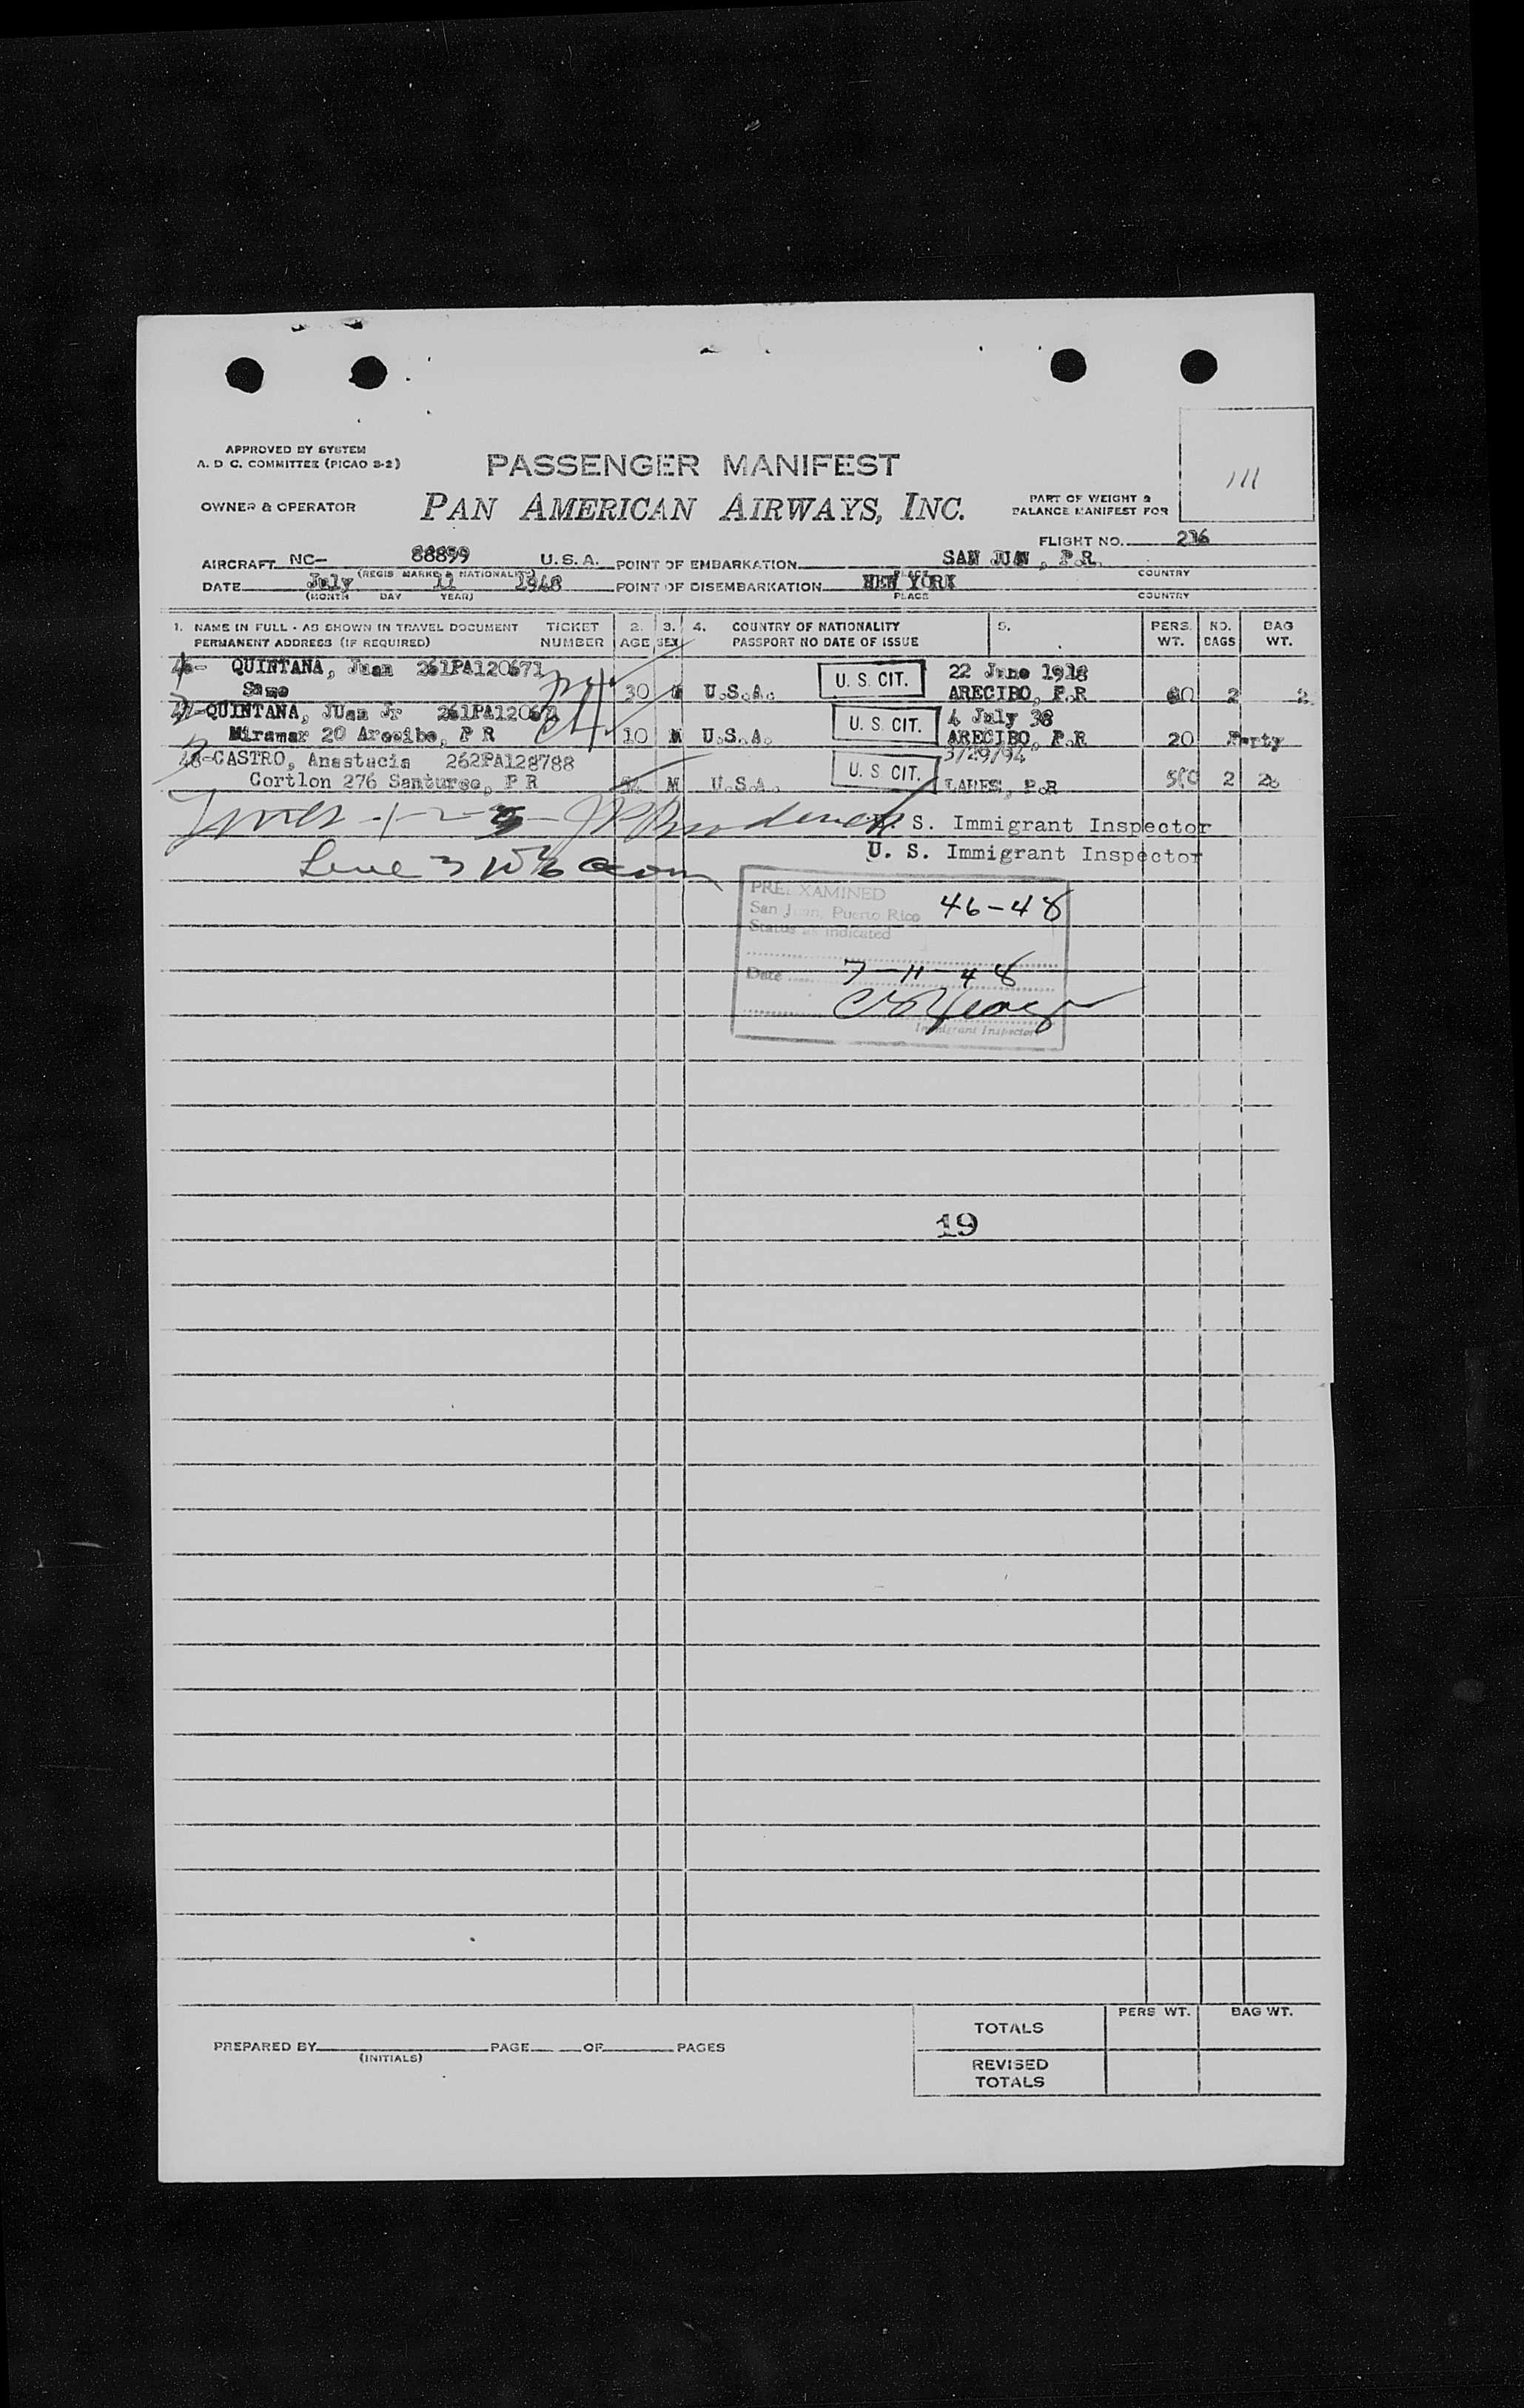 111
APPROVED BY SYSTEM
A. D C. COMMITTEE (PICAO S-2)
PASSENGER MANIFEST
OWNER & OPERATOR
PAN AMERICAN AIRWAYS, INC.
PART OF WEIGHT &
BALANCE MANIFEST FOR
FLIGHT NO. 216
AIRCRAFT NC- 88899 U. S. A. POINT OF EMBARKATION SAN JUAN, P.R.
(REGIS MARKS & NATIONALITY) PLACE COUNTRY
DATE July 11 1948 POINT OF DISEMBARKATION NEW YORK
(MONTH DAY YEAR) PLACE COUNTRY
1. NAME IN FULL - AS SHOWN IN TRAVEL DOCUMENT TICKET 2. 3. 4. COUNTRY OF NATIONALITY 5. PERS. NO. BAG
PERMANENT ADDRESS (IF REQUIRED) NUMBER AGE SEX PASSPORT NO DATE OF ISSUE WT. BAGS WT.
46- QUINTANA, Juan 261PA120671 U. S. CIT. 22 June 1918
Same 30 M U.S.A. ARECIBO, P.R 2
47-QUINTANA, JUan Jr U. S. CIT. 4 July 38
Miramar 20 Arecibo, P R 10 M U.S.A. ARECIBO, P.R 20 Party
48-CASTRO, Anastacia 262PA128788 U. S. CIT. 3/29/94
Cortlon 276 Santurce, P R M U.S.A. LARES, P.R 2 26
U. S. Immigrant Inspector
Line 3
U. S. Immigrant Inspector
PRE EXAMINED
San Juan, Puerto Rico 46-48
Status as indicated
Date 7-11-48
Immigrant Inspector
19
PREPARED BY PAGE OF PAGES
(INITIALS)
PERS WT. BAG WT.
TOTALS
REVISED
TOTALS